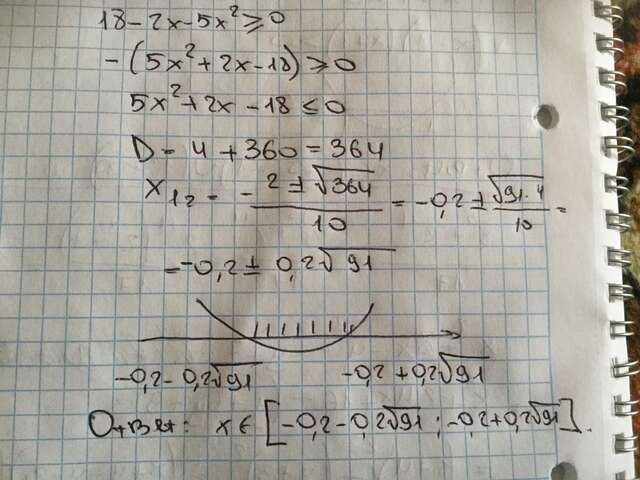 18-2x-5x²≥0
-(5x²+2x-18)≥0
5x²+2x-18≤0
D=4+360=364
x₁₂=-2±√364/10=-0,2±√91·4/10=
=-0,2±0,2√91
-0,2-0,2√91 -0,2+0,2√91
Ответ: x∈[-0,2-0,2√91;-0,2+0,2√91].